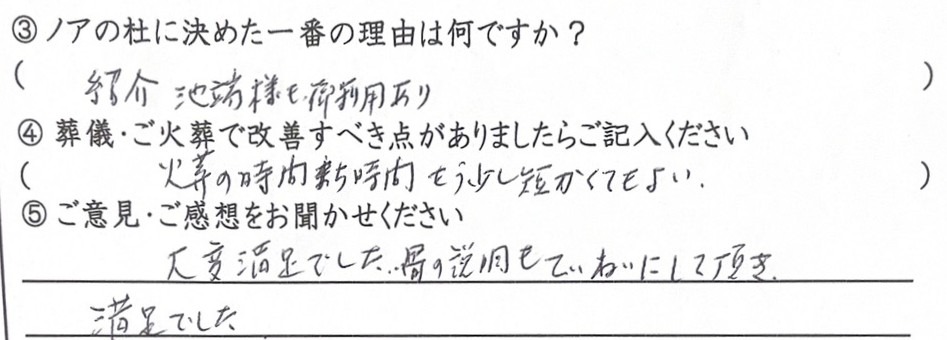 ③ ノアの杜に決めた一番の理由は何ですか？
( 紹介 池端様も御利用あり )
④ 葬儀・ご火葬で改善すべき点がありましたらご記入ください
( 火葬の時間 待ち時間 もう少し短かくてもよい. )
⑤ ご意見・ご感想をお聞かせください
大変満足でした. 骨の説明もていねいにして頂き.
満足でした